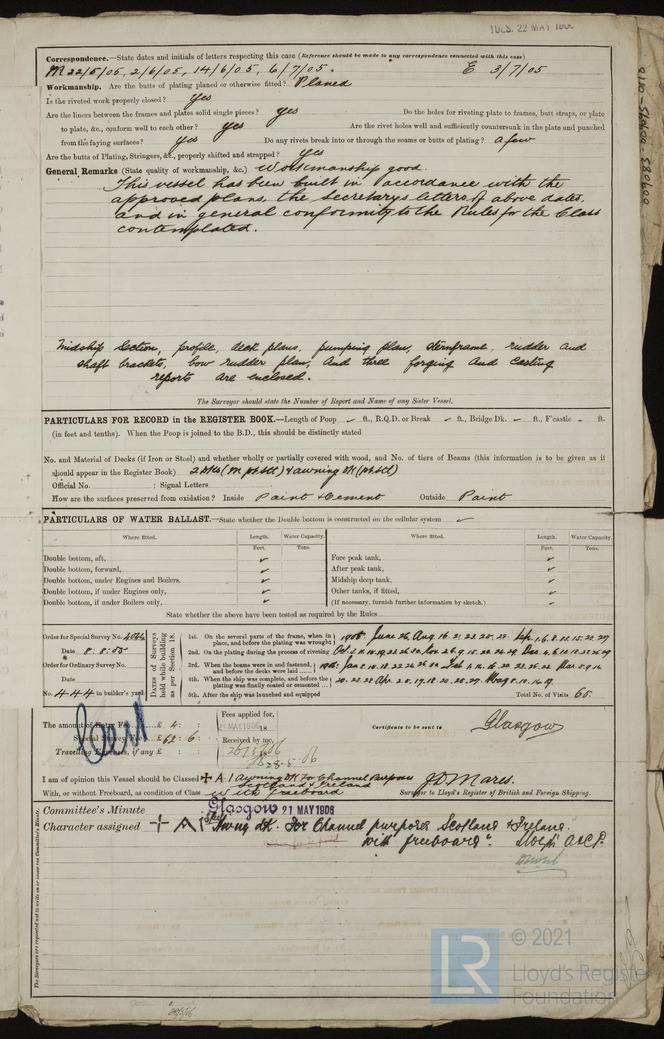 TUES. 22 MAY 1906
Correspondence.—State dates and initials of letters respecting this case (Reference should be made to any correspondence connected with this case)
M 22/5/05, 2/6/05, 14/6/05, 6/7/05. E 3/7/05
Workmanship. Are the butts of plating planed or otherwise fitted? Planed
Is the riveted work properly closed? Yes
Are the liners between the frames and plates solid single pieces? yes Do the holes for riveting plate to frames, butt straps, or plate
to plate, &c., conform well to each other? Yes Are the rivet holes well and sufficiently countersunk in the plate and punched
from the faying surfaces? Yes Do any rivets break into or through the seams or butts of plating? A few
Are the butts of Plating, Stringers, &c., properly shifted and strapped? Yes
General Remarks (State quality of workmanship, &c.) Workmanship good.
This vessel has been built in accordance with the
approved plans, the Secretarys letters of above dates,
and in general conformity to the Rules for the Class
contemplated.
Midship Section, profile, deck plans, pumping plan, sternframe, rudder and
shaft brackets, bow rudder plan, and three forging and casting
reports are enclosed.
The Surveyor should state the Number of Report and Name of any Sister Vessel.
PARTICULARS FOR RECORD in the REGISTER BOOK.—Length of Poop ft., R.Q.D. or Break ft., Bridge Dk. ft., F'castle ft.
(in feet and tenths). When the Poop is joined to the B.D., this should be distinctly stated
No. and Material of Decks (if Iron or Steel) and whether wholly or partially covered with wood, and No. of tiers of Beams (this information is to be given as it
should appear in the Register Book) 2 Dks (M pt stl) & awning Dk (pt stl)
Official No. ; Signal Letters
How are the surfaces preserved from oxidation? Inside Paint & Cement Outside Paint
PARTICULARS OF WATER BALLAST.—State whether the Double bottom is constructed on the cellular system
Where fitted. Length. Water Capacity. Where fitted. Length. Water Capacity.
Feet. Tons. Feet. Tons.
Double bottom, aft, Fore peak tank,
Double bottom, forward, After peak tank,
Double bottom, under Engines and Boilers, Midship deep tank,
Double bottom, if under Engines only, Other tanks, if fitted,
Double bottom, if under Boilers only, (If necessary, furnish further information by sketch.)
State whether the above have been tested as required by the Rules
Order for Special Survey No. 4066
Date 8.8.05
Order for Ordinary Survey No.
Date
No. 444 in builder's yard
Dates of Surveys held while building as per Section 18.
1st. On the several parts of the frame, when in place, and before the plating was wrought 1905 June 26, Aug 16
2nd. On the plating during the process of riveting
3rd. When the beams were in and fastened, and before the decks were laid 1906
4th. When the ship was complete, and before the plating was finally coated or cemented
5th. After the ship was launched and equipped Total No. of Visits 65.
The amount of Entry Fee £ 4 : :
Special Survey Fee £ 62 : 6 :
Travelling Expenses, if any £ : :
Fees applied for,
21 MAY 1906
Received by me,
28.5.06
Certificate to be sent to Glasgow
I am of opinion this Vessel should be Classed + A.1 Awning Dk For Channel Purposes
Scotland & Ireland
With, or without Freeboard, as condition of Class With freeboard
J.D. Mares.
Surveyor to Lloyd's Register of British and Foreign Shipping.
Committee's Minute Glasgow 21 MAY 1906
Character assigned + A1 Awng Dk. For Channel purposes Scotland & Ireland.
"with freeboard". Lloyd's A&CP.
The Surveyors are requested not to write on or across this Committee's Minute.
LR
© 2021
Lloyd's Register
Foundation